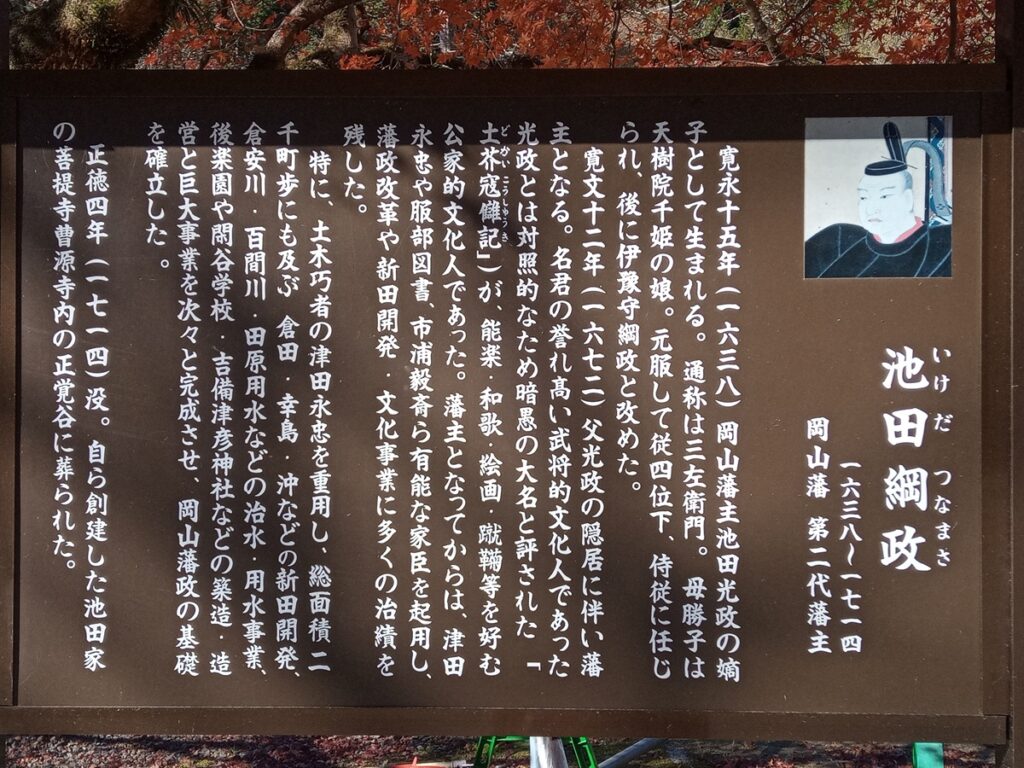 池田綱政
いけだ つなまさ
一六三八〜一七一四
岡山藩 第二代藩主
寛永十五年(一六三八)岡山藩主池田光政の嫡
子として生まれる。通称は三左衛門。母勝子は
天樹院千姫の娘。元服して従四位下、侍従に任じ
られ、後に伊豫守綱政と改めた。
寛文十二年(一六七二)父光政の隠居に伴い藩
主となる。名君の誉れ高い武将的文化人であった
光政とは対照的なため暗愚の大名と評された「
土芥寇讎記」)が、能楽・和歌・絵画・蹴鞠等を好む
どかいこうしゅうき
公家的文化人であった。藩主となってからは、津田
永忠や服部図書、市浦毅斎ら有能な家臣を起用し、
藩政改革や新田開発・文化事業に多くの治績を
残した。
特に、土木巧者の津田永忠を重用し、総面積二
千町歩にも及ぶ 倉田・幸島・沖などの新田開発、
倉安川・百間川・田原用水などの治水・用水事業、
後楽園や閑谷学校・吉備津彦神社などの築造・造
営と巨大事業を次々と完成させ、岡山藩政の基礎
を確立した。
正徳四年(一七一四)没。自ら創建した池田家
の菩提寺曹源寺内の正覚谷に葬られた。